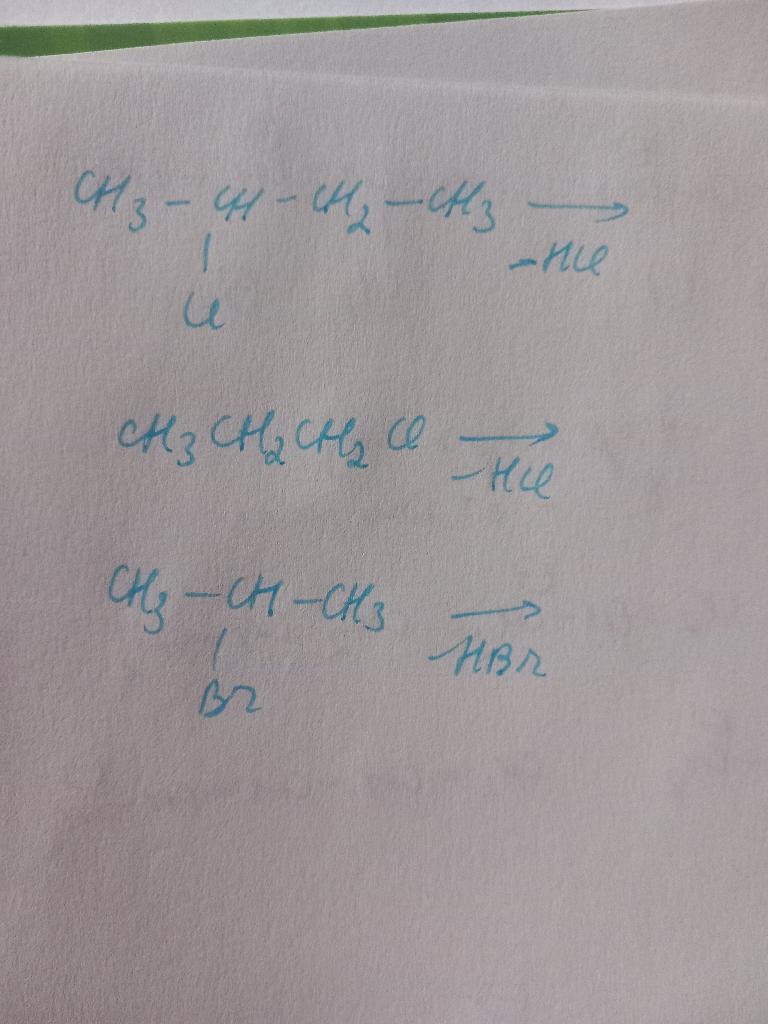 CH₃ – CH – CH₂ – CH₃ →
– HCl
|
Cl
CH₃CH₂CH₂Cl →
– HCl
CH₃ – CH – CH₃ →
| – HBr
Br